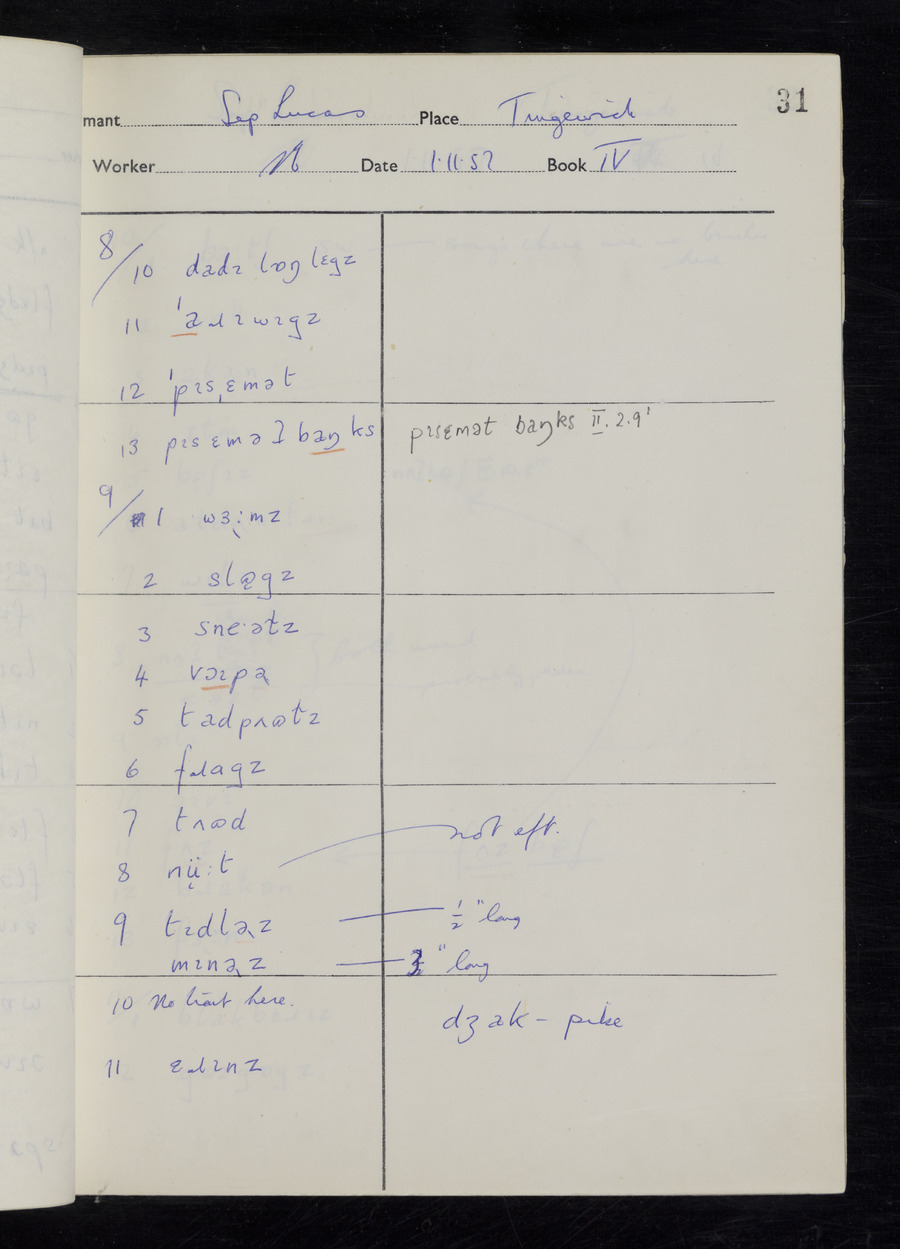 31
mant Sep Lucas Place Tingewick
Worker Date 1·11·57 Book IV
8/10 dadɪ lɒŋ lɛgz
11 ˈəɹɪwɪgz
12 ˈpɪsˌɛmət
13 pɪsɛmət baŋks pɪsɛmət baŋks II.2.9ˈ
9/1 wɜ:mz
2 slɷgz
3 sne·ətz
4 vəɪpə
5 tadpʌɷtz
6 fɹagz
7 tʌɷd
8 nü:t not eft.
9 tɪdləz ½" long
mɪnəz 3" long
10 No trout here. dʒak - pike
11 ɛɹɪnz